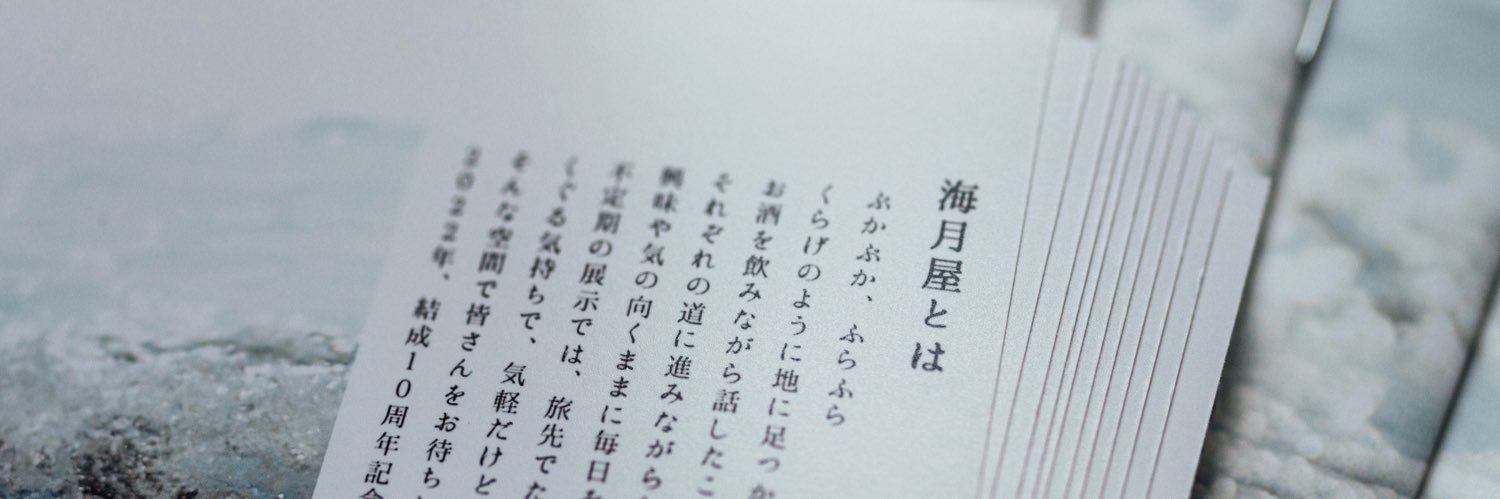 海月屋とは
ぷかぷか、ふらふら
くらげのように地に足つか
お酒を飲みながら話したこ
それぞれの道に進みながら
興味や気の向くままに毎日
不定期の展示では、旅先でた
くぐる気持ちで、気軽だけど
そんな空間で皆さんをお待ち
2022年、結成10周年記念